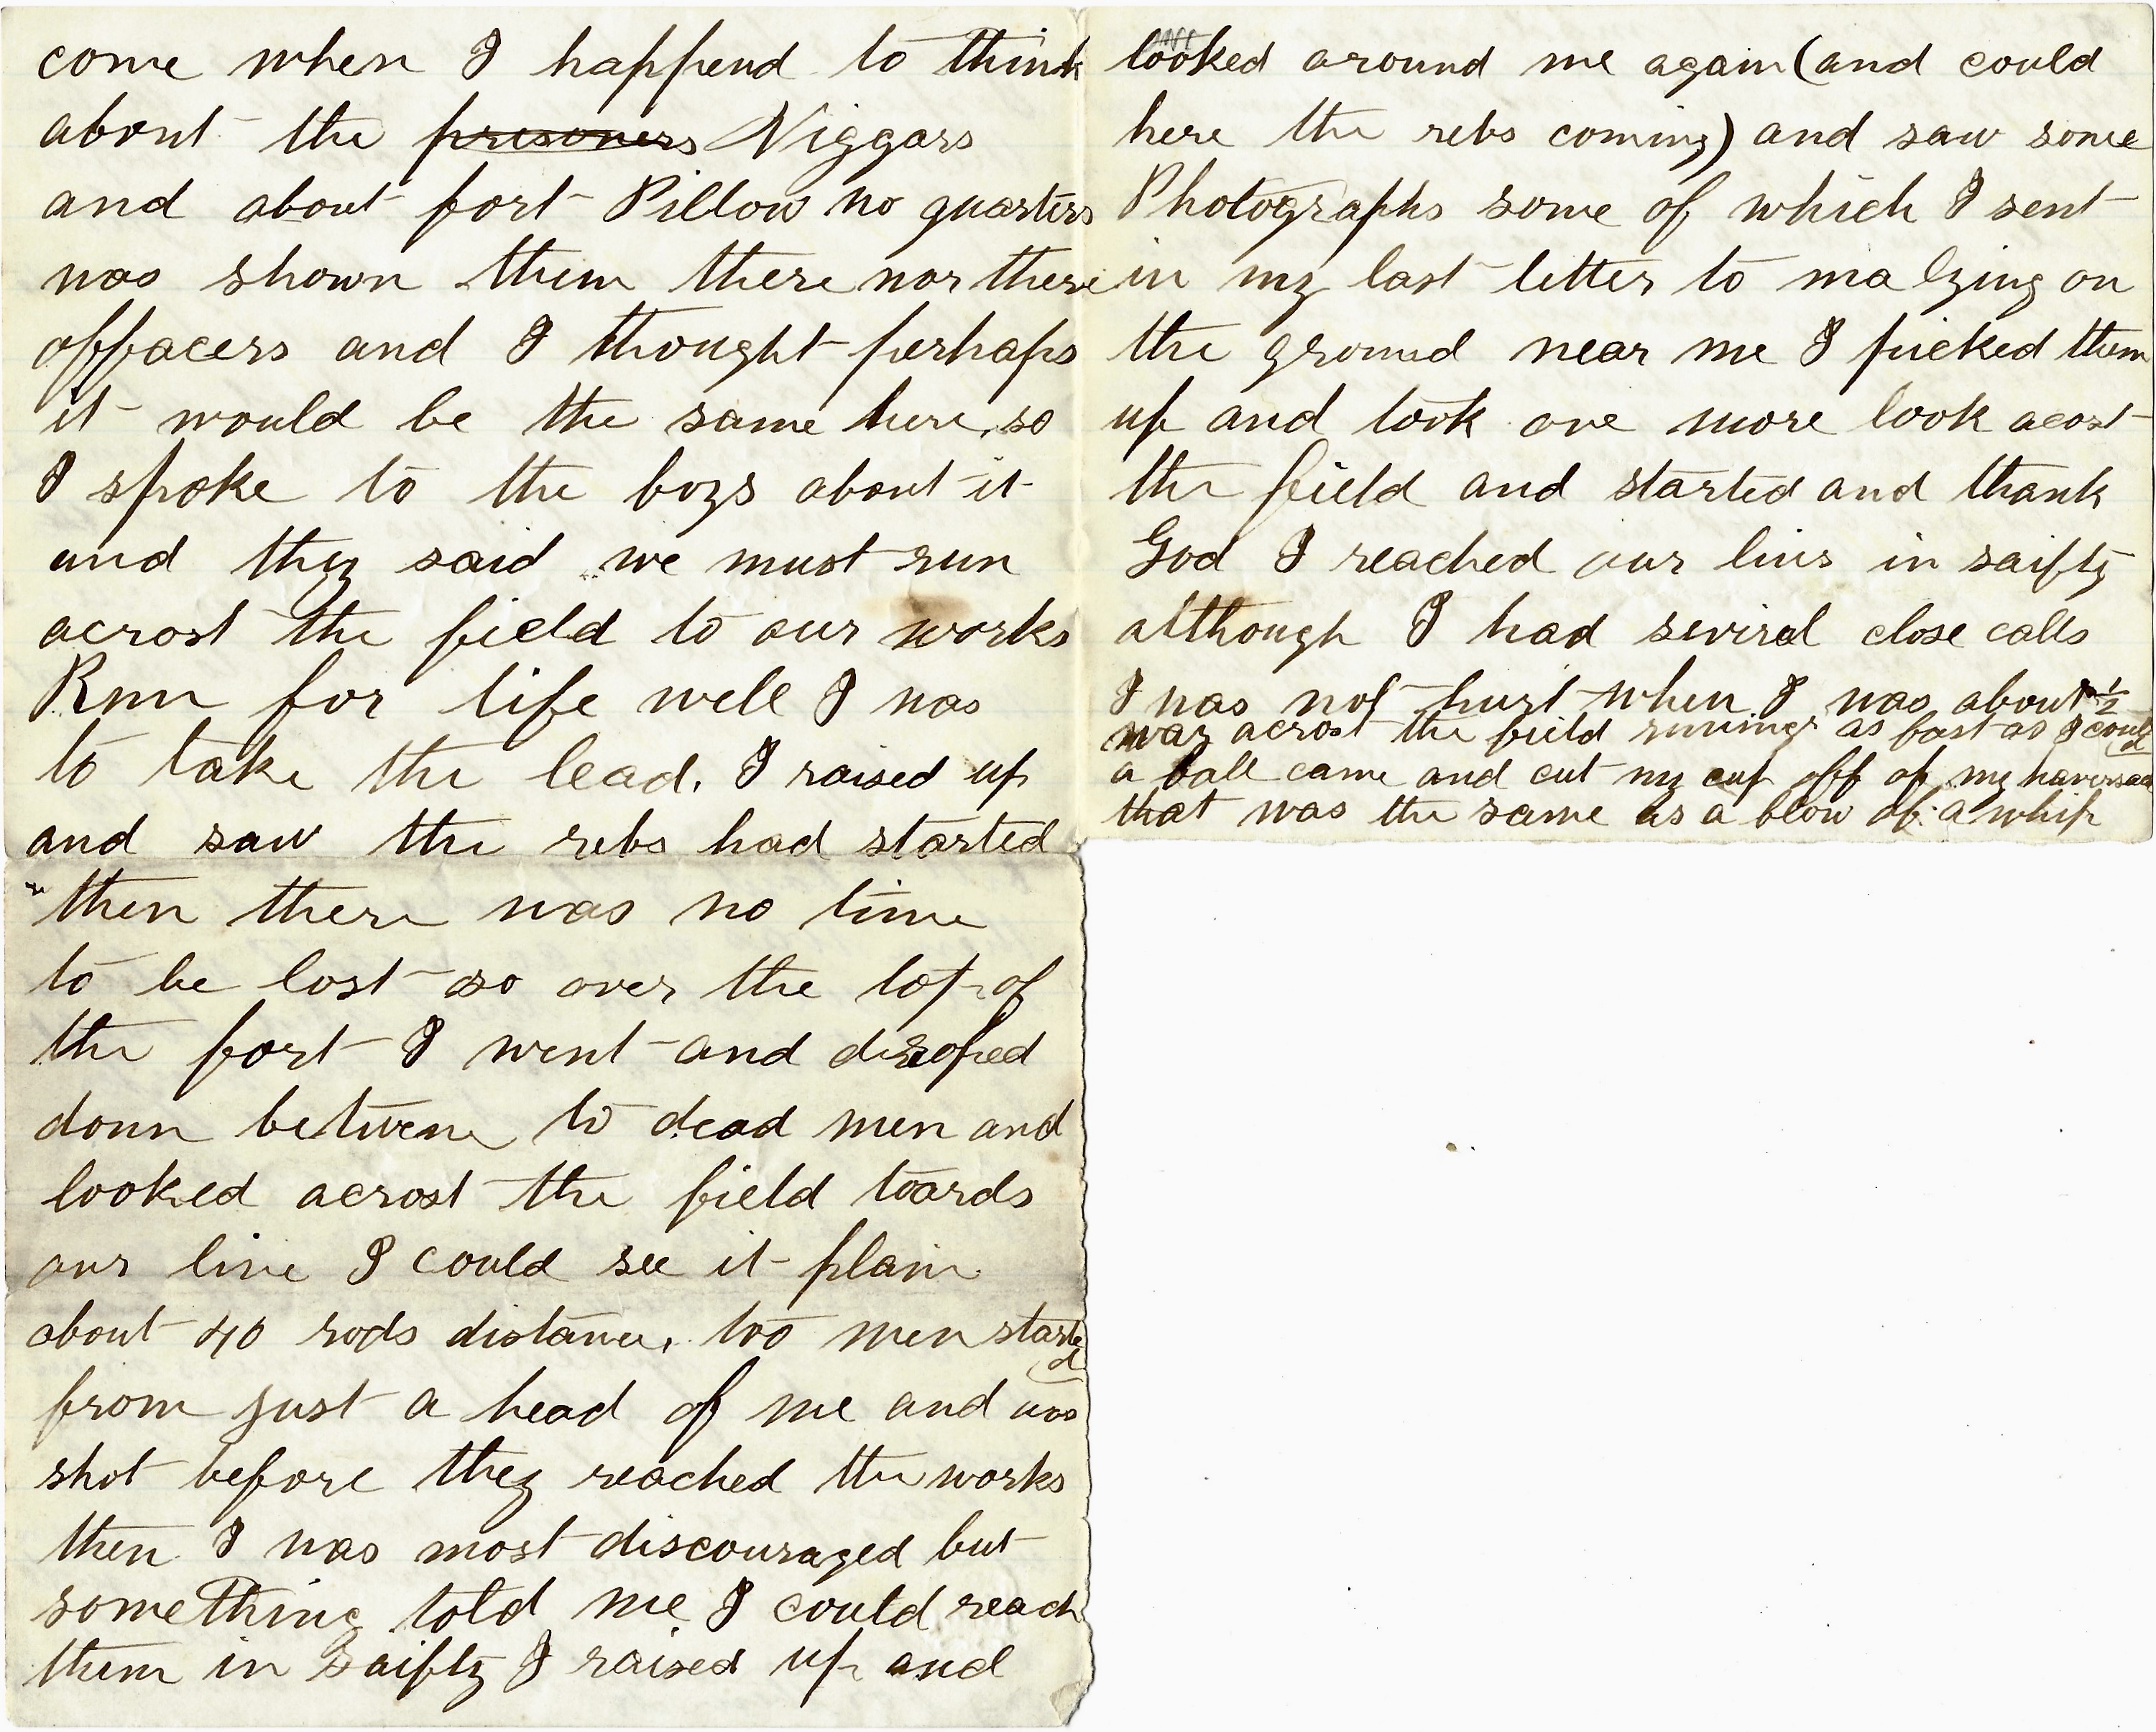 come when I happend to think
about the prisoners Niggars
and about fort Pillow no quarters
was shown them there nor there
offacers and I thought perhaps
it would be the same here, so
I spoke to the boys about it
and they said we must run
acrost the field to our works
Run for life well I was
to take the lead. I raised up
and saw the rebs had started
then there was no time
to be lost so over the top of
the fort I went and droped
down betwene to dead men and
looked acrost the field toards
our line I could see it plain
about 40 rods distance. too men started
from just a head of me and was
shot before they reached the works
then I was most discouraged but
something told me I could reach
them in saifty I raised up and
looked around me again (and could
here the rebs coming) and saw some
Photographs some of which I sent
in my last letter to ma lying on
the ground near me I picked them
up and took one more look acost
the field and started and thank
God I reached our lins in saifty
although I had seviral close calls
I was not hurt when I was about 1/2
way acrost the field runing as fast as I could
a ball came and cut my cup off of my haversack
that was the same as a blow of a whip